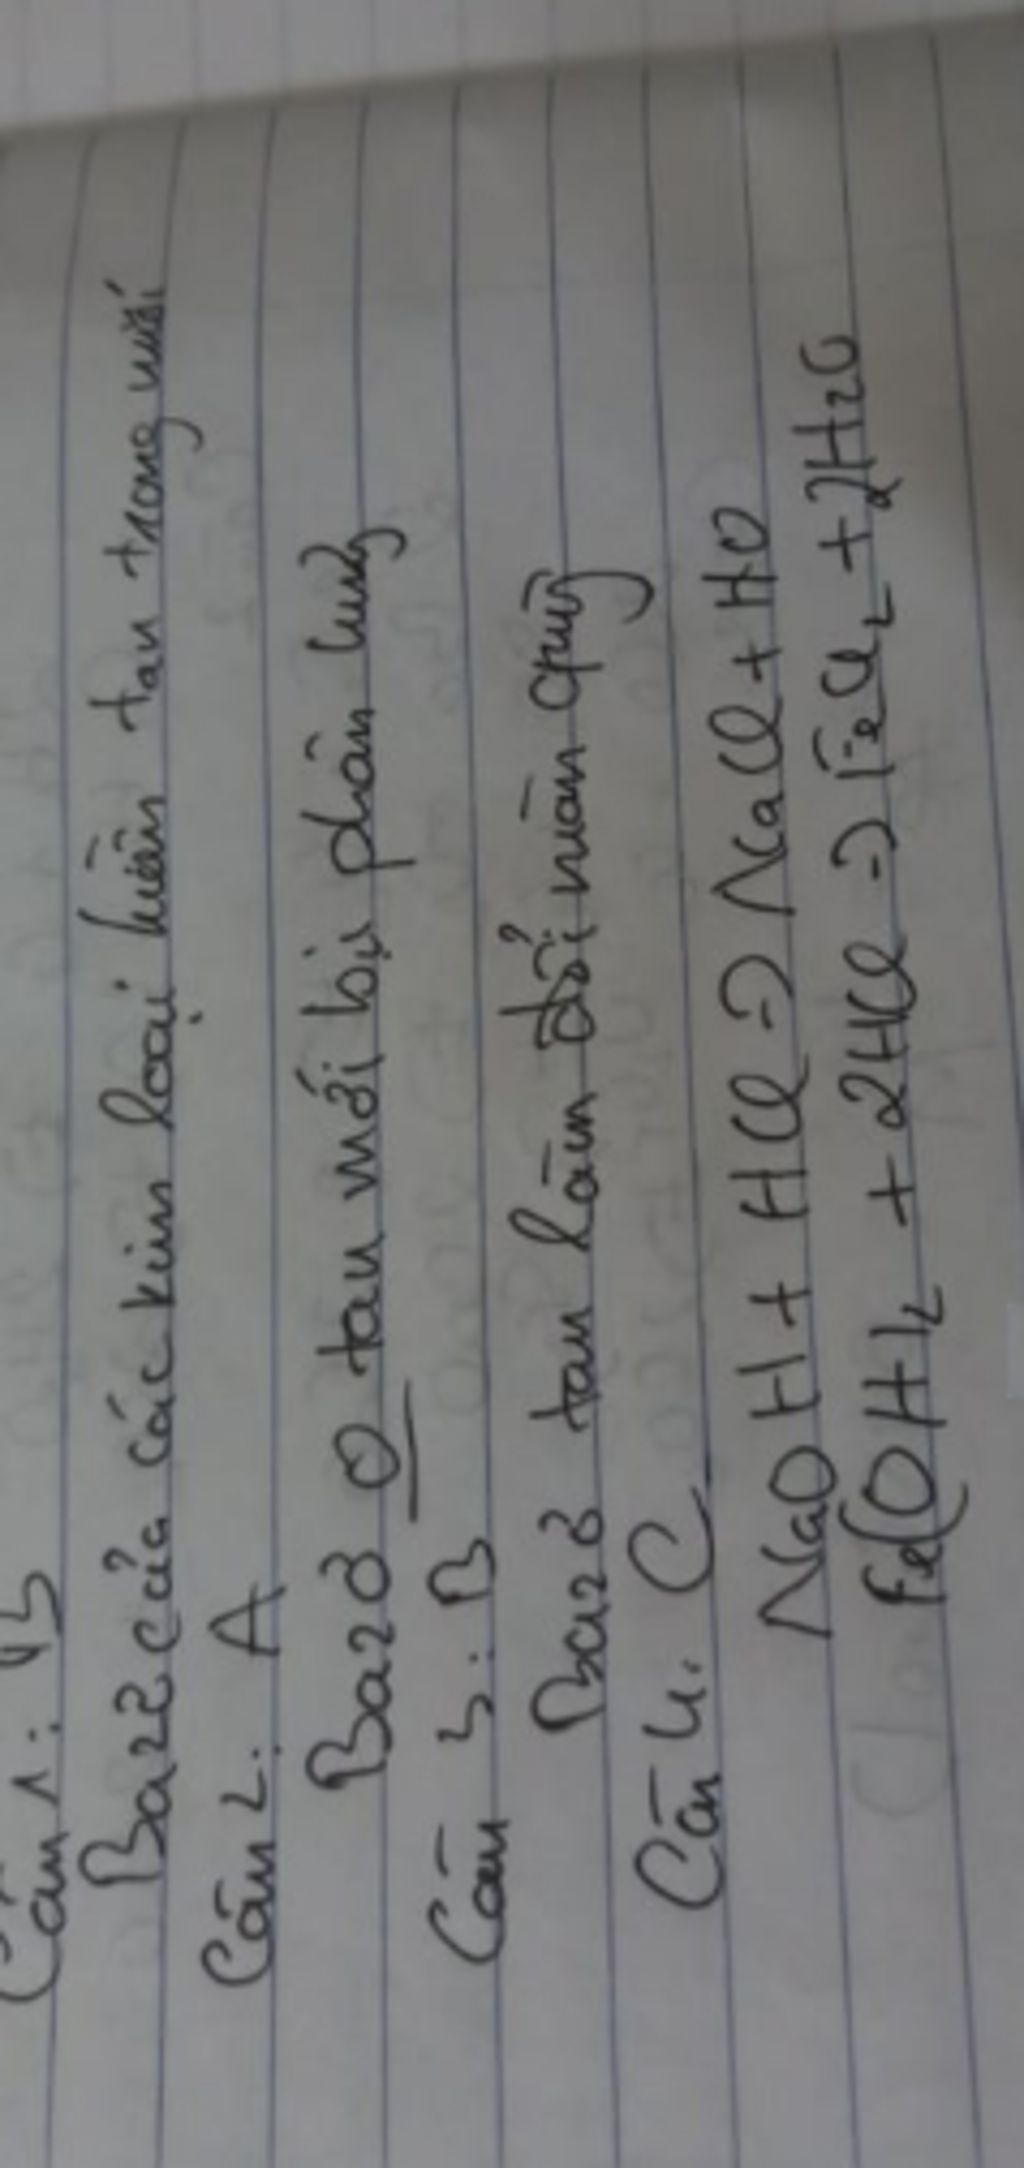 Câu 1: B
Bazơ của các kim loại kiềm tan trong nước
Câu 2: A
Bazơ O tan mới bị phân huỷ
Câu 3: B
Bazơ tan làm đổi màu quỳ
Câu 4. C
NaOH + HCl → NaCl + HO
Fe(OH)₂ + 2HCl → FeCl₂ + 2H2O